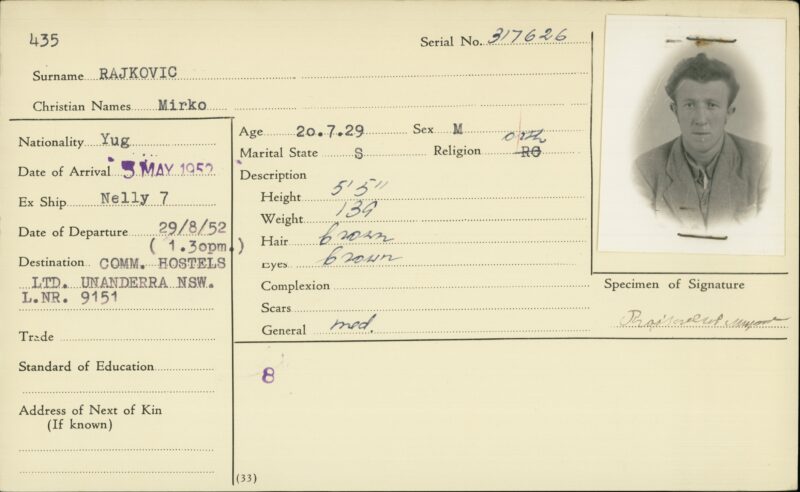 435
Serial No. 317626
Surname RAJKOVIC
Christian Names Mirko
Nationality Yug
Date of Arrival 3 MAY 1952
Ex Ship Nelly 7
Date of Departure 29/8/52
( 1.30pm.)
Destination COMM. HOSTELS
LTD. UNANDERRA NSW.
L.NR. 9151
Trade
Standard of Education
Address of Next of Kin
(If known)
Age 20.7.29 Sex M
orth
Marital State S Religion RO
Description
Height 5'5"
Weight 139
Hair brown
Eyes brown
Complexion
Scars
General med.
8
(33)
Specimen of Signature